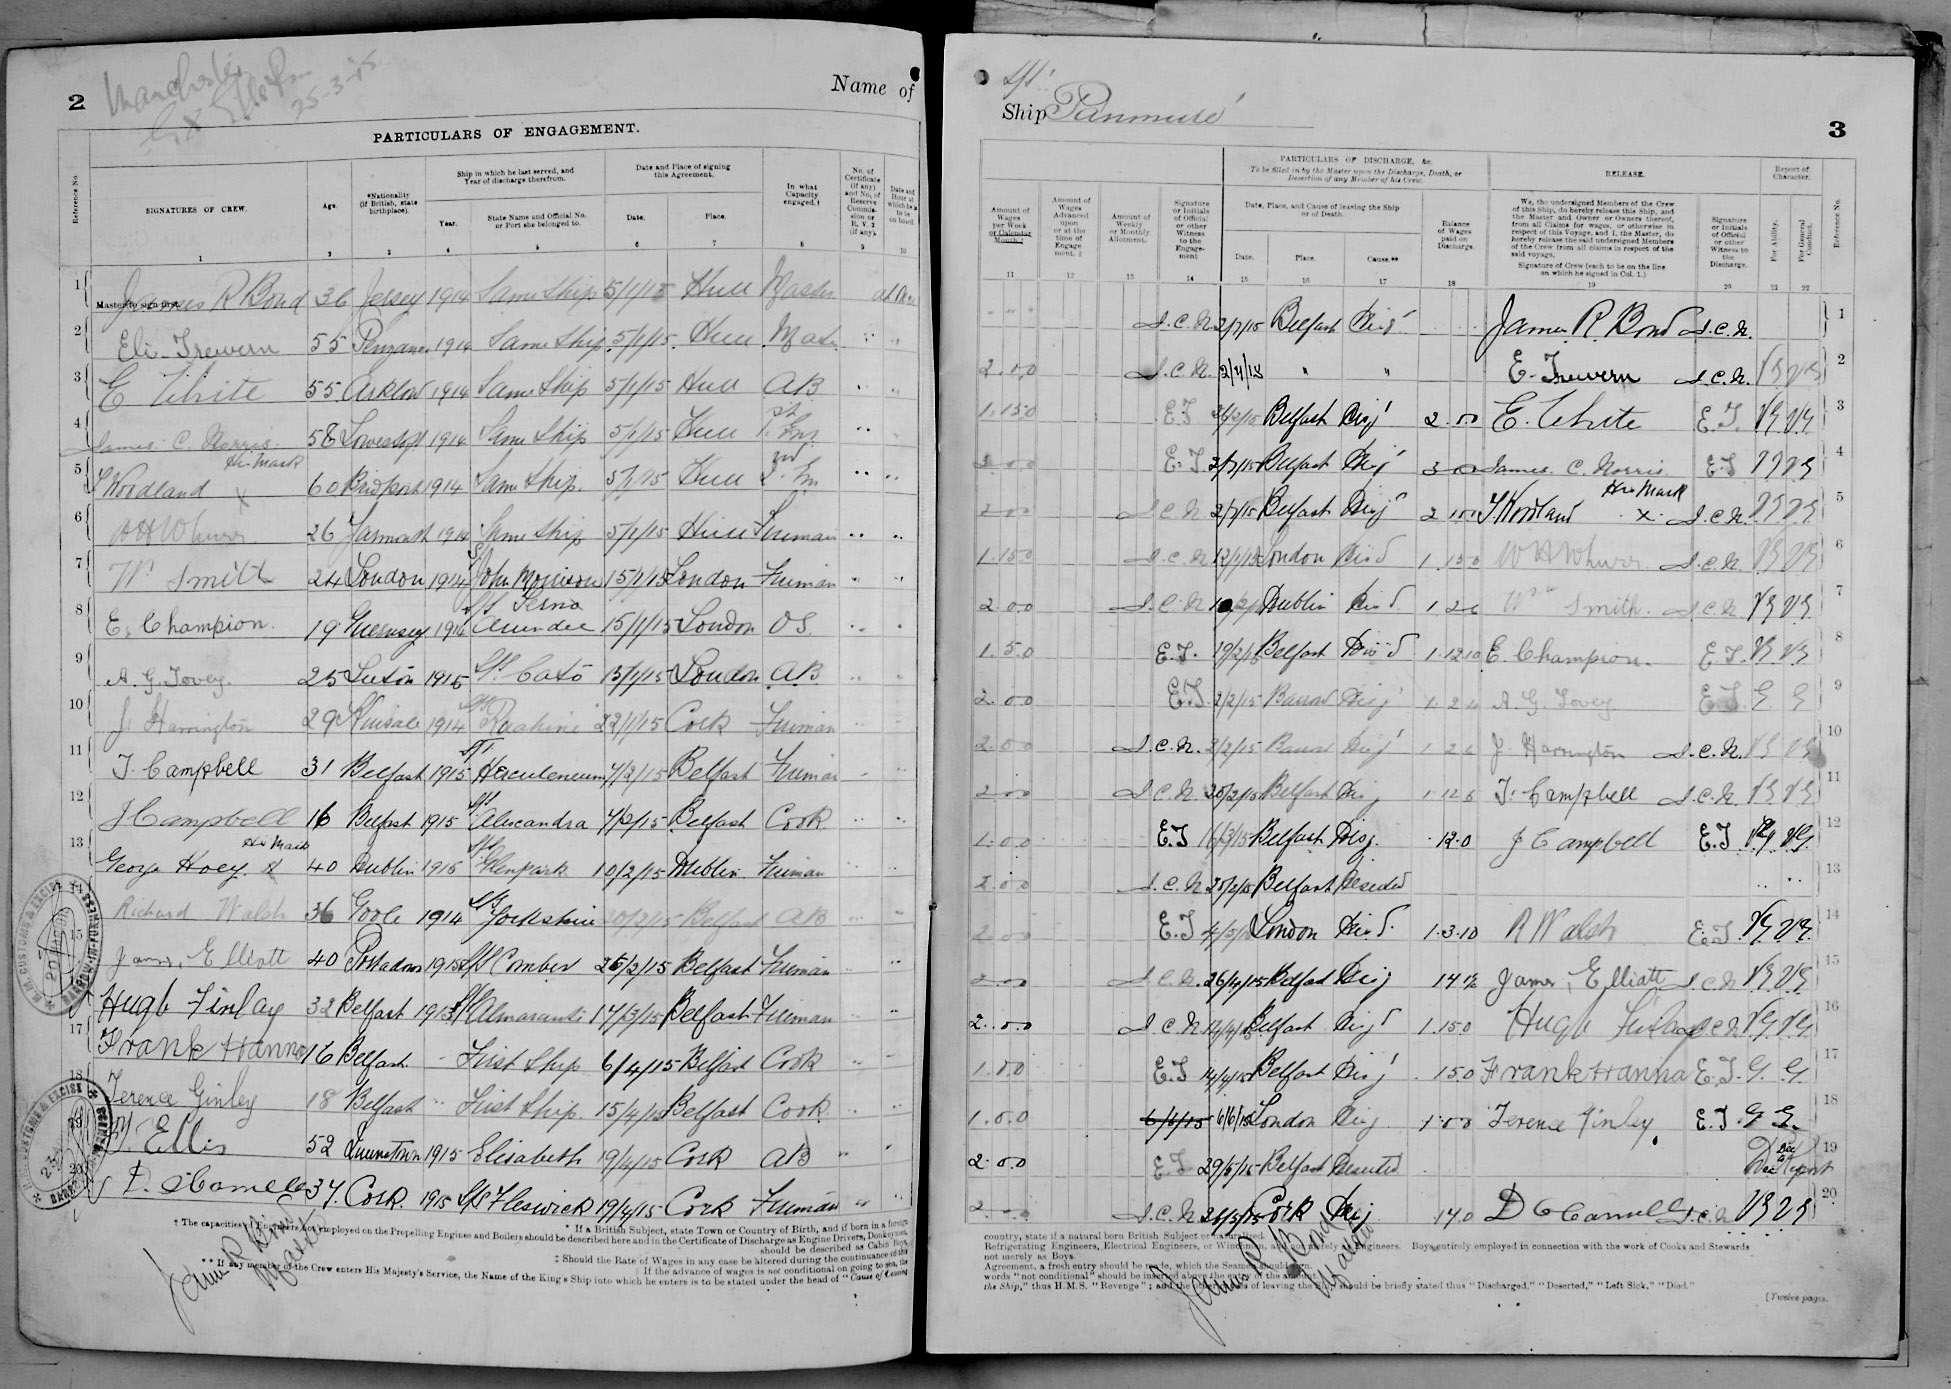 2
Manchester
25-3-15
Name of
PARTICULARS OF ENGAGEMENT.
Reference No.
SIGNATURES OF CREW.
Age.
*Nationality (if British, state birthplace).
Ship in which he last served, and Year of discharge therefrom.
Year.
State Name and Official No. or Port she belonged to.
Date and Place of signing this Agreement.
Date.
Place.
In what Capacity engaged.†
No. of Certificate (if any) and No. of Reserve Commission or R.V. 2 (if any).
Date and Hour at which he is to be on board.
1 2 3 4 5 6 7 8 9 10
Master to sign first.
1 James R Bond 36 Jersey 1914 Same Ship 5/1/15 Hull Master
2 Eli Trewern 55 Penzance 1914 Same Ship 5/1/15 Hull Mate
3 E White 55 Arklow 1914 Same Ship 5/1/15 Hull AB
4 James C. Norris 58 Lowestoft 1914 Same Ship 5/1/15 Hull
His Mark
5 Woodland X 60 Bridport 1914 Same Ship 5/1/15 Hull
6 W H Whurr 26 Yarmouth 1914 Same Ship 5/1/15 Hull Fireman
7 Wm Smith 24 London 1914 John Morrison 15/1/15 London Fireman
8 E. Champion. 19 Guernsey 15/1/15 London OS
9 A. G. Tovey. 25 1915 S/S Cato 13/1/15 London AB
10 J Harrington 29 Kinsale 1914 22/1/15 Cork Fireman
11 T. Campbell 31 Belfast 1915 Herculeneum 4/2/15 Belfast Fireman
12 J Campbell 16 Belfast 1915 S/S Alexandra 4/2/15 Belfast Cook
His Mark
13 George Hoey X 40 Dublin 1915 S/S Glenpark 10/2/15 Dublin Fireman
14 Richard Walsh 36 Goole 1914 S/S Yorkshire 20/2/15 Belfast AB
15 James Elliott 40 Portadown 1915 S/S Comber 26/2/15 Belfast Fireman
16 Hugh Finlay 32 Belfast 1915 17/3/15 Belfast Fireman
17 Frank Hanna 16 Belfast - First Ship 6/4/15 Belfast Cook
18 Terence Ginley 18 Belfast " First Ship 15/4/15 Belfast Cook
19 Ellis 52 Queenstown 1915 Elisabeth 19/4/15 Cork AB
20 37 Cork 1915 S/S Fleswick 19/4/15 Cork Fireman
† The capacities of Engineers not employed on the Propelling Engines and Boilers should be described here and in the Certificate of Discharge as Engine Drivers,
* If a British Subject, state Town or Country of Birth, and if born in a foreign
should be described as Cabin Boys,
‡ Should the Rate of Wages in any case be altered during the continuance of this
If the advance of wages is not conditional on going to sea, the
** If any member of the Crew enters His Majesty's Service, the Name of the King's Ship into which he enters is to be stated under the head of "Cause of Leaving
James R Bond
Master
Ship Panmure
3
PARTICULARS OF DISCHARGE, &c.
To be filled in by the Master upon the Discharge, Death, or Desertion of any Member of his Crew.
RELEASE.
Report of Character.
Amount of Wages per Week or Calendar Month.‡
Amount of Wages Advanced upon or at the time of Engagement.‡
Amount of Weekly or Monthly Allotment.
Signature or Initials of Official or other Witness to the Engagement
Date, Place, and Cause of leaving the Ship or of Death.
Date.
Place.
Cause.**
Balance of Wages paid on Discharge.
We, the undersigned Members of the Crew of this Ship, do hereby release this Ship, and the Master and Owner or Owners thereof, from all Claims for wages, or otherwise in respect of this Voyage, and I, the Master, do hereby release the said undersigned Members of the Crew from all claims in respect of the said voyage.
Signature of Crew (each to be on the line on which he signed in Col. 1.)
Signature or Initials of Official or other Witness to the Discharge.
For Ability.
For General Conduct.
Reference No.
11 12 13 14 15 16 17 18 19 20 21 22
J.C.N. 2/7/15 Belfast Disd James R. Bond J.C.N. 1
2.0.0 J.C.N. " " E. Trewern J.C.N. VG VG 2
1.15.0 E.T Belfast Disd 2.0.0 E. White E.T. VG VG 3
E.T 2/7/15 Belfast Disd James C. Norris E.T VG VG 4
His Mark
J.C.N. 2/7/15 Belfast Disd X J.C.N. VG VG 5
1.15.0 J.C.N. London Disd 1.15.0 W H Whurr J.C.N. VG VG 6
2.0.0 J.C.N Dublin Disd 1.2.6 Wm Smith. J.C.N VG VG 7
1.5.0 E.T. 19/2/15 Belfast Disd 1.12.10 E. Champion. E.T. VG VG 8
2.0.0 E.T. 2/2/15 Disd A. G. Tovey E.T. G G 9
2.0.0 J.C.N. 2/2/15 Disd 1.2.6 J. Harrington J.C.N. VG VG 10
2.0.0 J.C.N. 20/2/15 Belfast Disd 1.12.6 T. Campbell J.C.N. VG VG 11
1.0.0 E.T Belfast Disd. 12.0 J Campbell E.T VG VG 12
2.0.0 J.C.N 25/2/15 Belfast Deserted 13
2.0.0 E.T London Disd. 1.3.10 R Walsh E.T. VG VG. 14
2.0.0 J.C.N. 26/4/15 Belfast Disd James Elliott J.C.N VG VG 15
2.0.0 J.C.N Belfast Disd 1.15.0 Hugh Finlay J.C.N VG VG 16
1.0.0 E.T 14/4/15 Belfast Disd 15.0 Frank Hanna E.T. G. G. 17
1.0.0 6/6/15 6/6/15 London Disd 1.0.0 Terence Ginley E.T. G G. 18
2.0.0 E.T 29/5/15 Belfast Deserted 19
J.C.N. Cork Disd 14.0 J.C.N VG VG 20
country, state if a natural born British Subject or naturalized.
Refrigerating Engineers, Electrical Engineers, or Winchmen, and not merely as Engineers. Boys entirely employed in connection with the work of Cooks and Stewards
not merely as Boys.
Agreement, a fresh entry should be made, which the Seaman should sign.
words "not conditional" should be inserted above the entry of the amount.
the Ship," thus H.M.S. "Revenge"; and the other causes of leaving the Ship should be briefly stated thus "Discharged," "Deserted," "Left Sick," "Died."
James R Bond
Master
[Twelve pages.